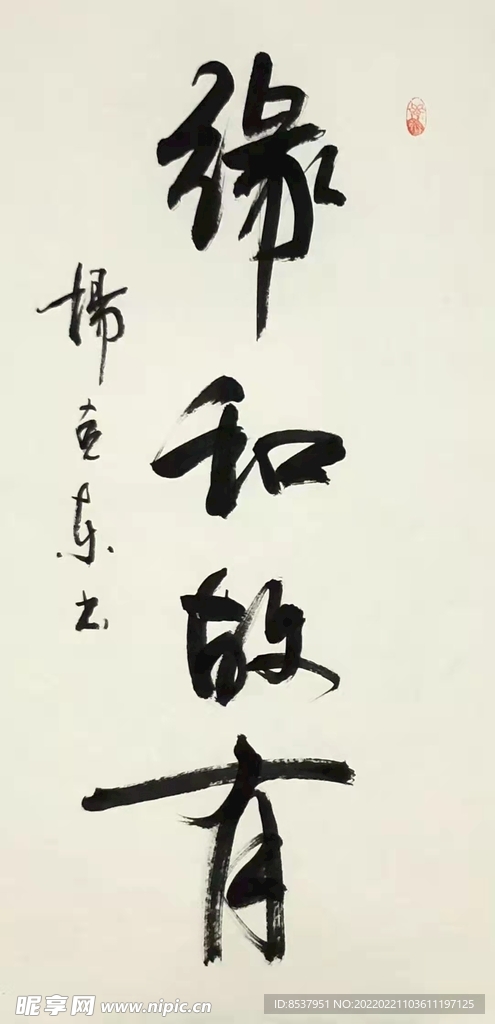 缘和故有
楊克东书
昵享网 www.nipic.cn
ID:8537951 NO:20220221103611197125